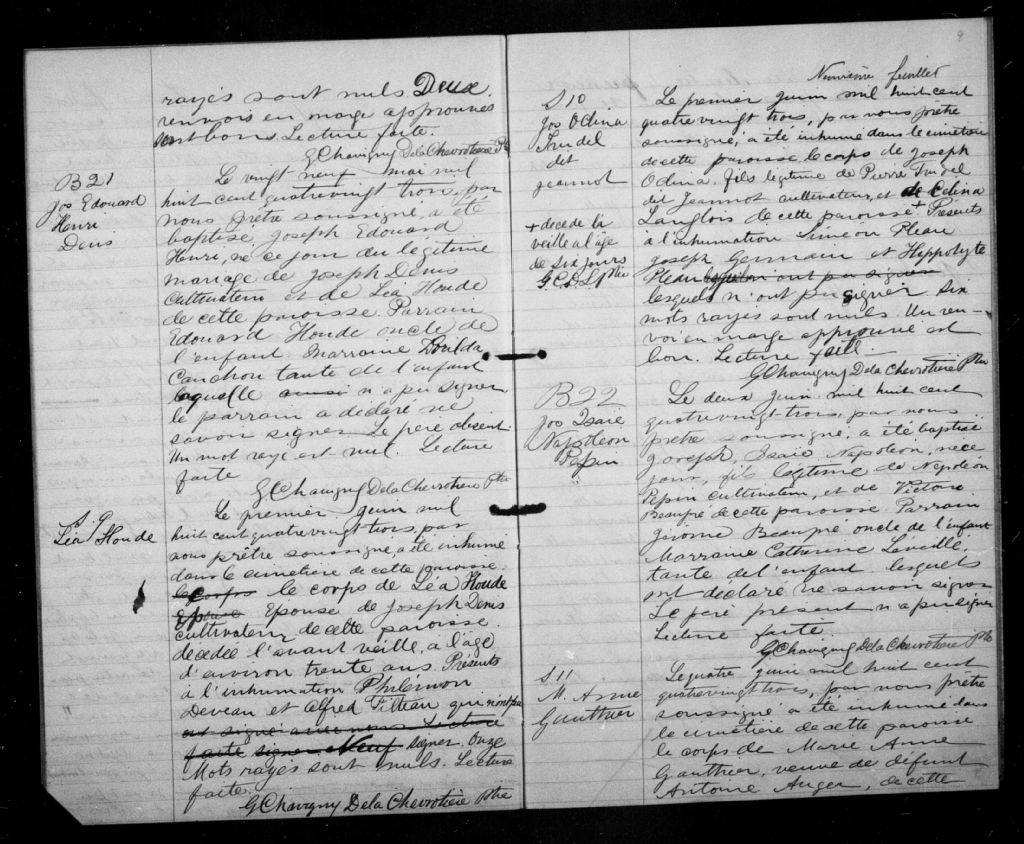 rayés sont nuls Deux
renvois en marge approuvés
sont bons. Lecture faite.
G Chavigny De la Chevrotière Ptre
B 21
Jos Edouard
Henri
Denis
Le vingt neuf mai mil
huit cent quatrevingt trois, par
nous prêtre soussigné, a été
baptisé Joseph Edouard
Henri, né ce jour du légitime
mariage de Joseph Denis
cultivateur et de Léa Houde
de cette paroisse. Parrain
Edouard Houde oncle de
l'enfant Marraine
Cauchon tante de l'enfant
laquelle aussi n'a pu signer
le parrain a declaré ne
savoir signer. Le père absent.
Un mot rayé est nul. Lecture
faite
G Chavigny De la Chevrotière Ptre
S 9
Léa Houde
Le premier juin mil
huit cent quatrevingt trois, par
nous prêtre soussigné a été inhumé
dans le cimetière de cette paroisse.
le corps le corps de Léa Houde
Epouse Epouse de Joseph Denis
cultivateur de cette paroisse.
decedée l'avant veille, a l'âge
d'environ trente ans. Présents
à l'inhumation Philémon
Deveau et Alfred Filteau qui n'ont pu
signé Lecture
faite signer Neuf signer. Onze
Mots rayés sont nuls. Lecture
faite.
G Chavigny De la Chevrotière Ptre
9
Neuvième feuillet
S 10
Jos Odina
Trudel
dit
Jeannot
+ decedé la
veille a l'âge
de six jours
G.C.D.L. Ptre
Le premier juin mil huit cent
quatre vingt trois, par nous prêtre
soussigné, a été inhumé dans le cimetière
de cette paroisse, le corps de Joseph
Odina, fils légitime de Pierre Trudel
dit Jeannot cultivateur, et de Célina
Langlois de cette paroisse + Présents
à l'inhumation Siméon Pleau
Joseph Germain et Hippolyte
Pleau lesquels n'ont pu signer
lesquels n'ont pu signer. Six
mots rayés sont nuls. Un ren-
voi en marge approuvé est
bon. Lecture faite.
G Chavigny De la Chevrotière Ptre
B 22
Jos Isaïe
Napoléon
Pepin
Le deux juin mil huit cent
quatrevingt trois, par nous
prêtre soussigné, a été baptisé
Joseph, Isaïe Napoléon, né ce
jour, fils légitime de Napoléon
Pepin cultivateur, et de Victoire
Beaupré de cette paroisse Parrain
Jérôme Beaupré oncle de l'enfant
Marraine Catherine Léveillé
tante de l'enfant lesquels
ont declaré ne savoir signer
Le père présent n'a pu signer
Lecture faite
G Chavigny De la Chevrotière Ptre
S 11
M. Anne
Gauthier
Le quatre juin mil huit cent
quatrevingt trois, par nous prêtre
soussigné a été inhumé dans
le cimetière de cette paroisse
le corps de Marie Anne
Gauthier, veuve de défunt
Antoine Auger, de cette